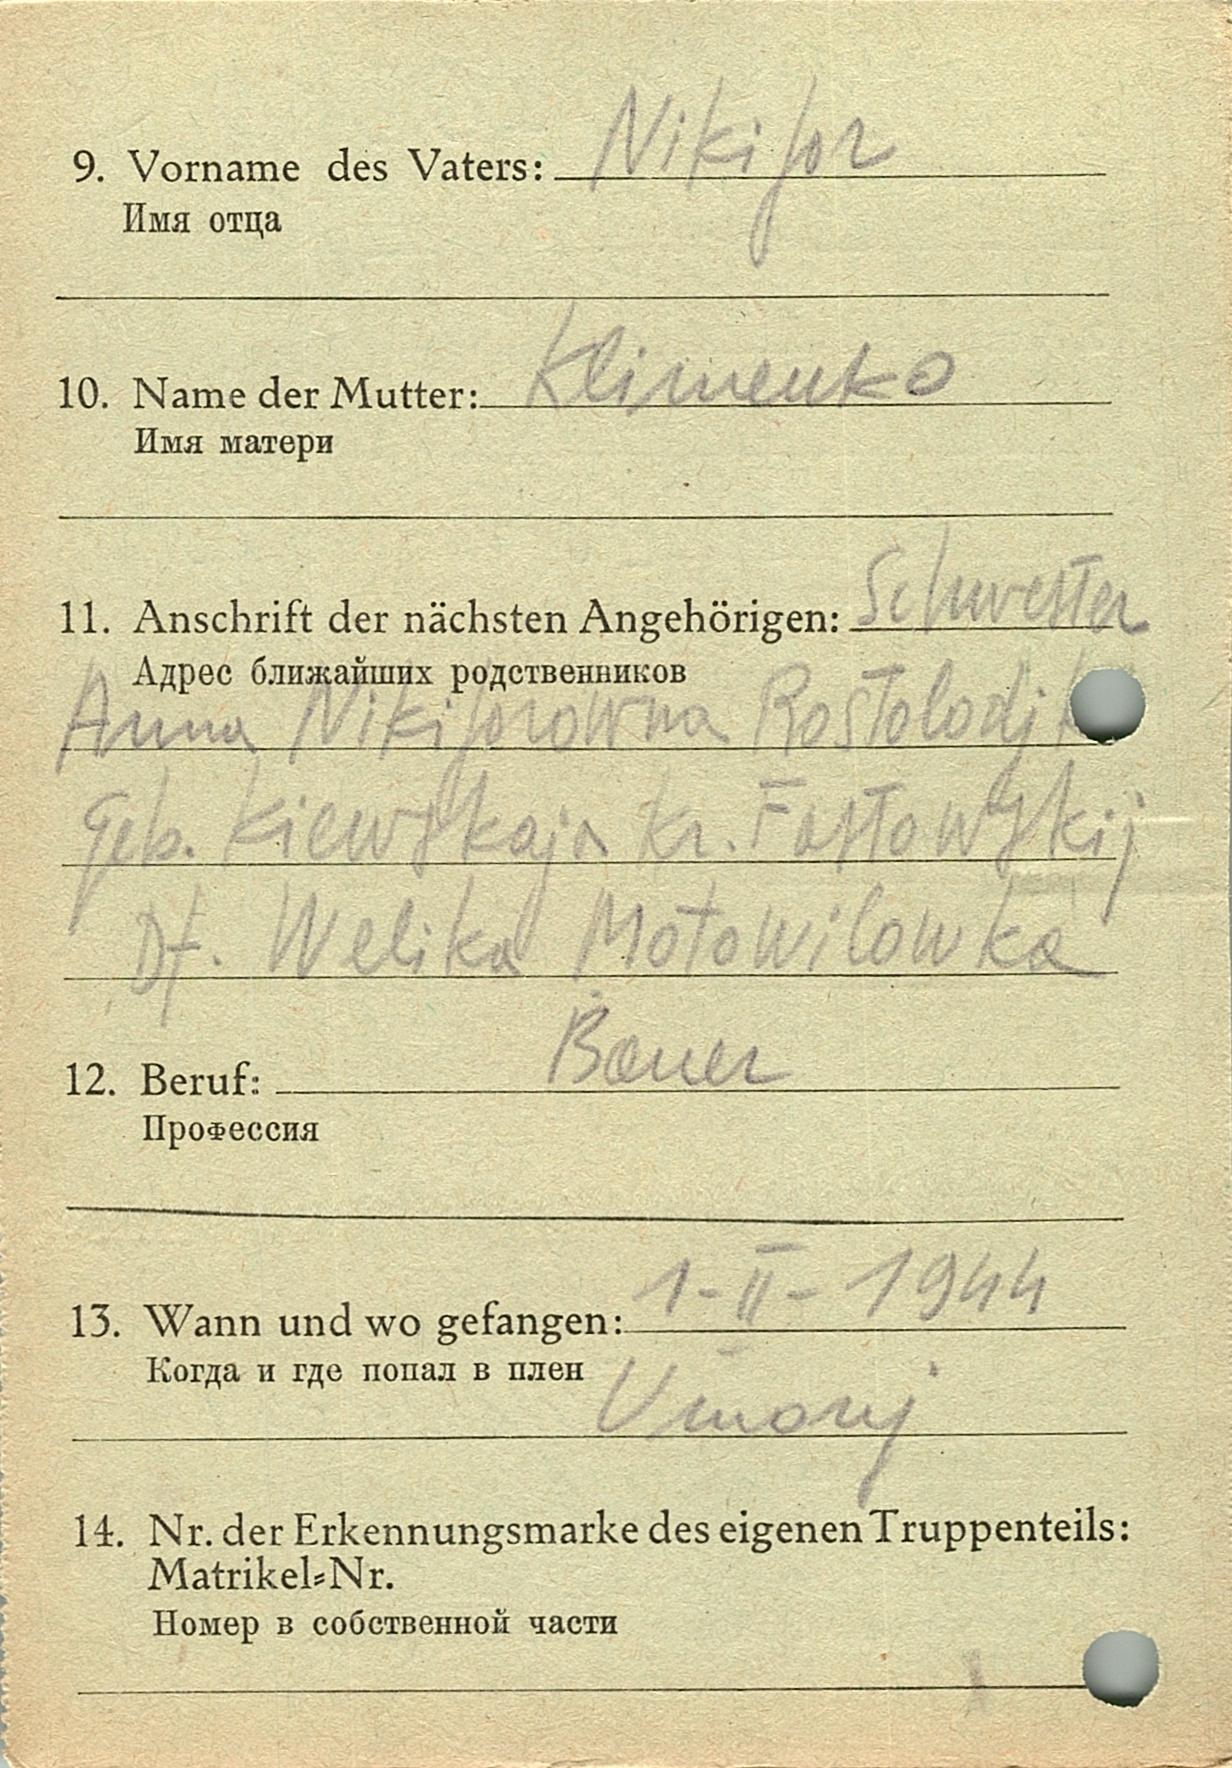 9. Vorname des Vaters: Nikifor
Имя отца
10. Name der Mutter: Klimenko
Имя матери
11. Anschrift der nächsten Angehörigen: Schwester
Адрес ближайших родственников
Anna Nikiforowna
Geb. Kiewskaja Kr. Fastowskij
Df. Welika Motowilowka
12. Beruf: Bauer
Профессия
13. Wann und wo gefangen: 1-II-1944
Когда и где попал в плен
14. Nr. der Erkennungsmarke des eigenen Truppenteils:
Matrikel-Nr.
Номер в собственной части